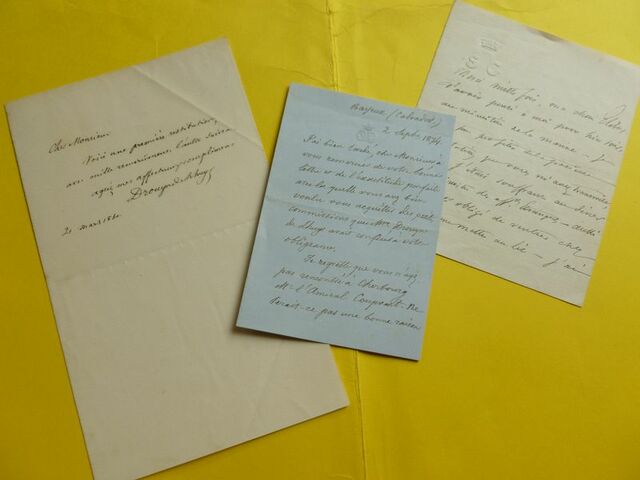 Cher Monsieur
Voici une première restitution,
avec mille remerciements. L'autre suivra
agréez mes affectueux compliments
Drouyn de Lhuys
20 mars 
Bayeux (Calvados)
2 Septe 1874
J'ai bien tardé, cher Monsieur, à
vous remercier de votre bonne
lettre et de l'exactitude parfaite
avec laquelle vous avez bien
voulu vous acquitter des petites
commissions que Mme Drouyn
de Lhuys avait confiées à votre
obligeance.
Je regrette que vous n'ayez
pas rencontré à Cherbourg
Mr l'Amiral Coupvent. Ne
serait-ce pas une bonne raison
Merci mille fois, mon cher
d'avoir pensé à moi pour
au ministère de la marine - je
que vous m'avez transmise
souffrant au
obligé de rentrer chez
me mettre au lit - j'ai